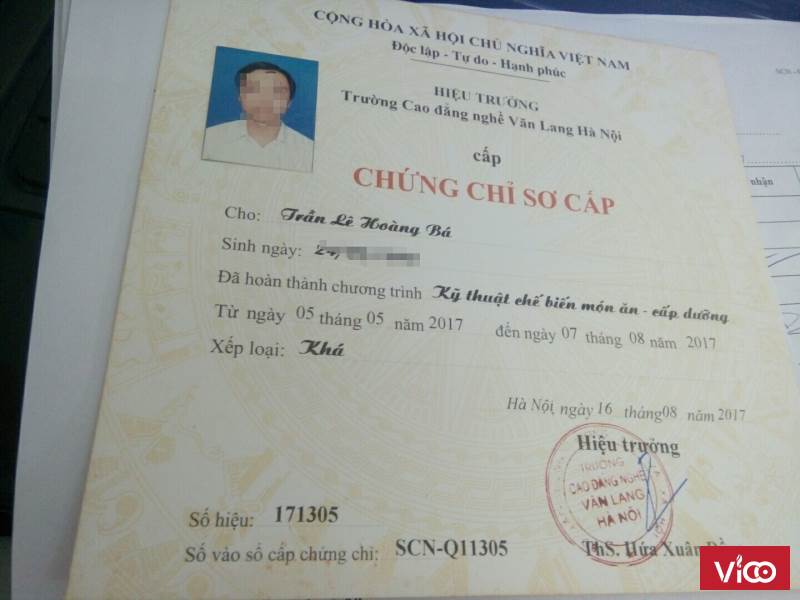 CỘNG HÒA XÃ HỘI CHỦ NGHĨA VIỆT NAM
Độc lập - Tự do - Hạnh phúc
HIỆU TRƯỞNG
Trường Cao đẳng nghề Văn Lang Hà Nội
cấp
CHỨNG CHỈ SƠ CẤP
Cho: Trần Lê Hoàng Bá
Sinh ngày:
Đã hoàn thành chương trình Kỹ thuật chế biến món ăn - cấp dưỡng
Từ ngày 05 tháng 05 năm 2017 đến ngày 07 tháng 08 năm 2017
Xếp loại: Khá
Hà Nội, ngày 16 tháng 08 năm 2017
Hiệu trưởng
TRƯỜNG
CAO ĐẲNG NGHỀ
VĂN LANG
HÀ NỘI
Số hiệu: 171305
Số vào sổ cấp chứng chỉ: SCN-Q11305
ThS. Hứa Xuân
nhận
Vico